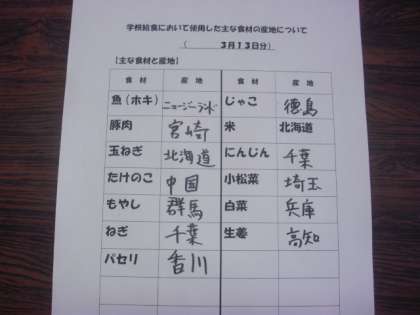 学校給食において使用した主な食材の産地について
( 3月13日分)
【主な食材と産地】
食材 産地 食材 産地
魚(ホキ) ニュージーランド じゃこ 徳島
豚肉 宮崎 米 北海道
玉ねぎ 北海道 にんじん 千葉
たけのこ 中国 小松菜 埼玉
もやし 群馬 白菜 兵庫
ねぎ 千葉 生姜 高知
パセリ 香川